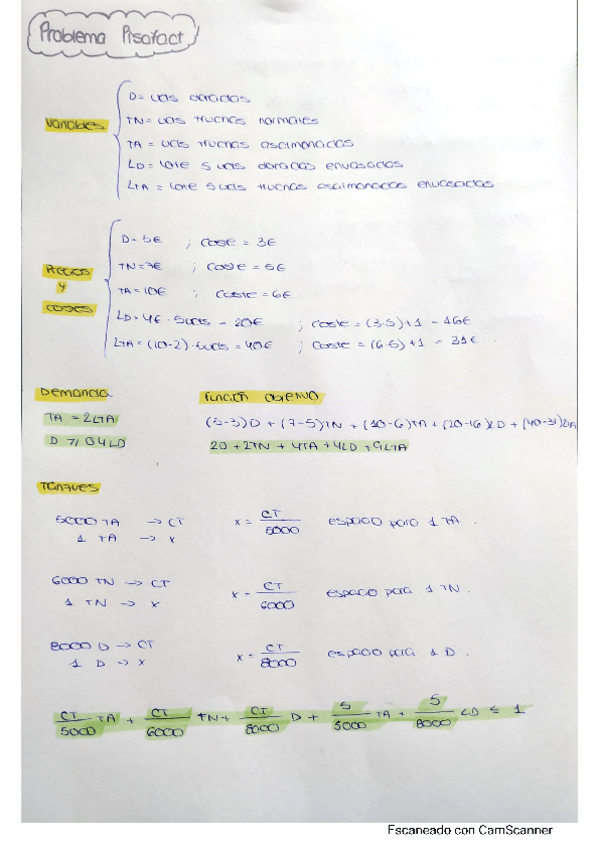 Problema Pisafact
Variables
D = uds doradas
TN = uds truchas normales
TA = uds truchas asalmonadas
LD = lote 5 uds doradas envasadas
LTA = lote 5 uds truchas asalmonadas envasadas
Precios
y
costes
D = 5€ ; coste = 3€
TN = 7€ ; coste = 5€
TA = 10€ ; coste = 6€
LD = 4€ · 5uds = 20€ ; coste = (3·5)+1 = 16€
LTA = (10-2)·5uds = 40€ ; coste = (6·5)+1 = 31€
Demanda
TA = 2LTA
D ≥ 0'4LD
Función objetivo
(5-3)D + (7-5)TN + (10-6)TA + (20-16)LD + (40-31)LTA
2D + 2TN + 4TA + 4LD + 9LTA
Tanques
5000 TA → CT
1 TA → x
x = CT/5000 espacio para 1 TA.
6000 TN → CT
1 TN → x
x = CT/6000 espacio para 1 TN.
8000 D → CT
1 D → x
x = CT/8000 espacio para 1 D.
CT/5000 TA + CT/6000 TN + CT/8000 D + 5/5000 TA + 5/8000 LD ≤ 1
Escaneado con CamScanner